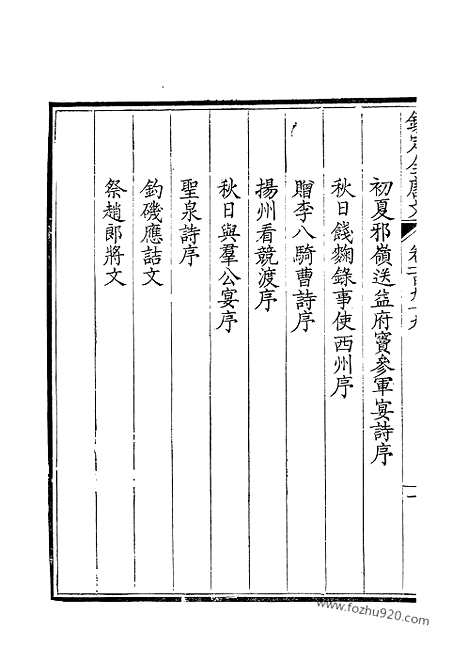 欽定全唐文 卷一百九十九 一
初夏邪嶺送益府竇參軍宴詩序
秋日餞麴錄事使西州序
贈李八騎曹詩序
揚州看競渡序
秋日與羣公宴序
聖泉詩序
釣磯應詰文
祭趙郎將文
www.fozhu920.com